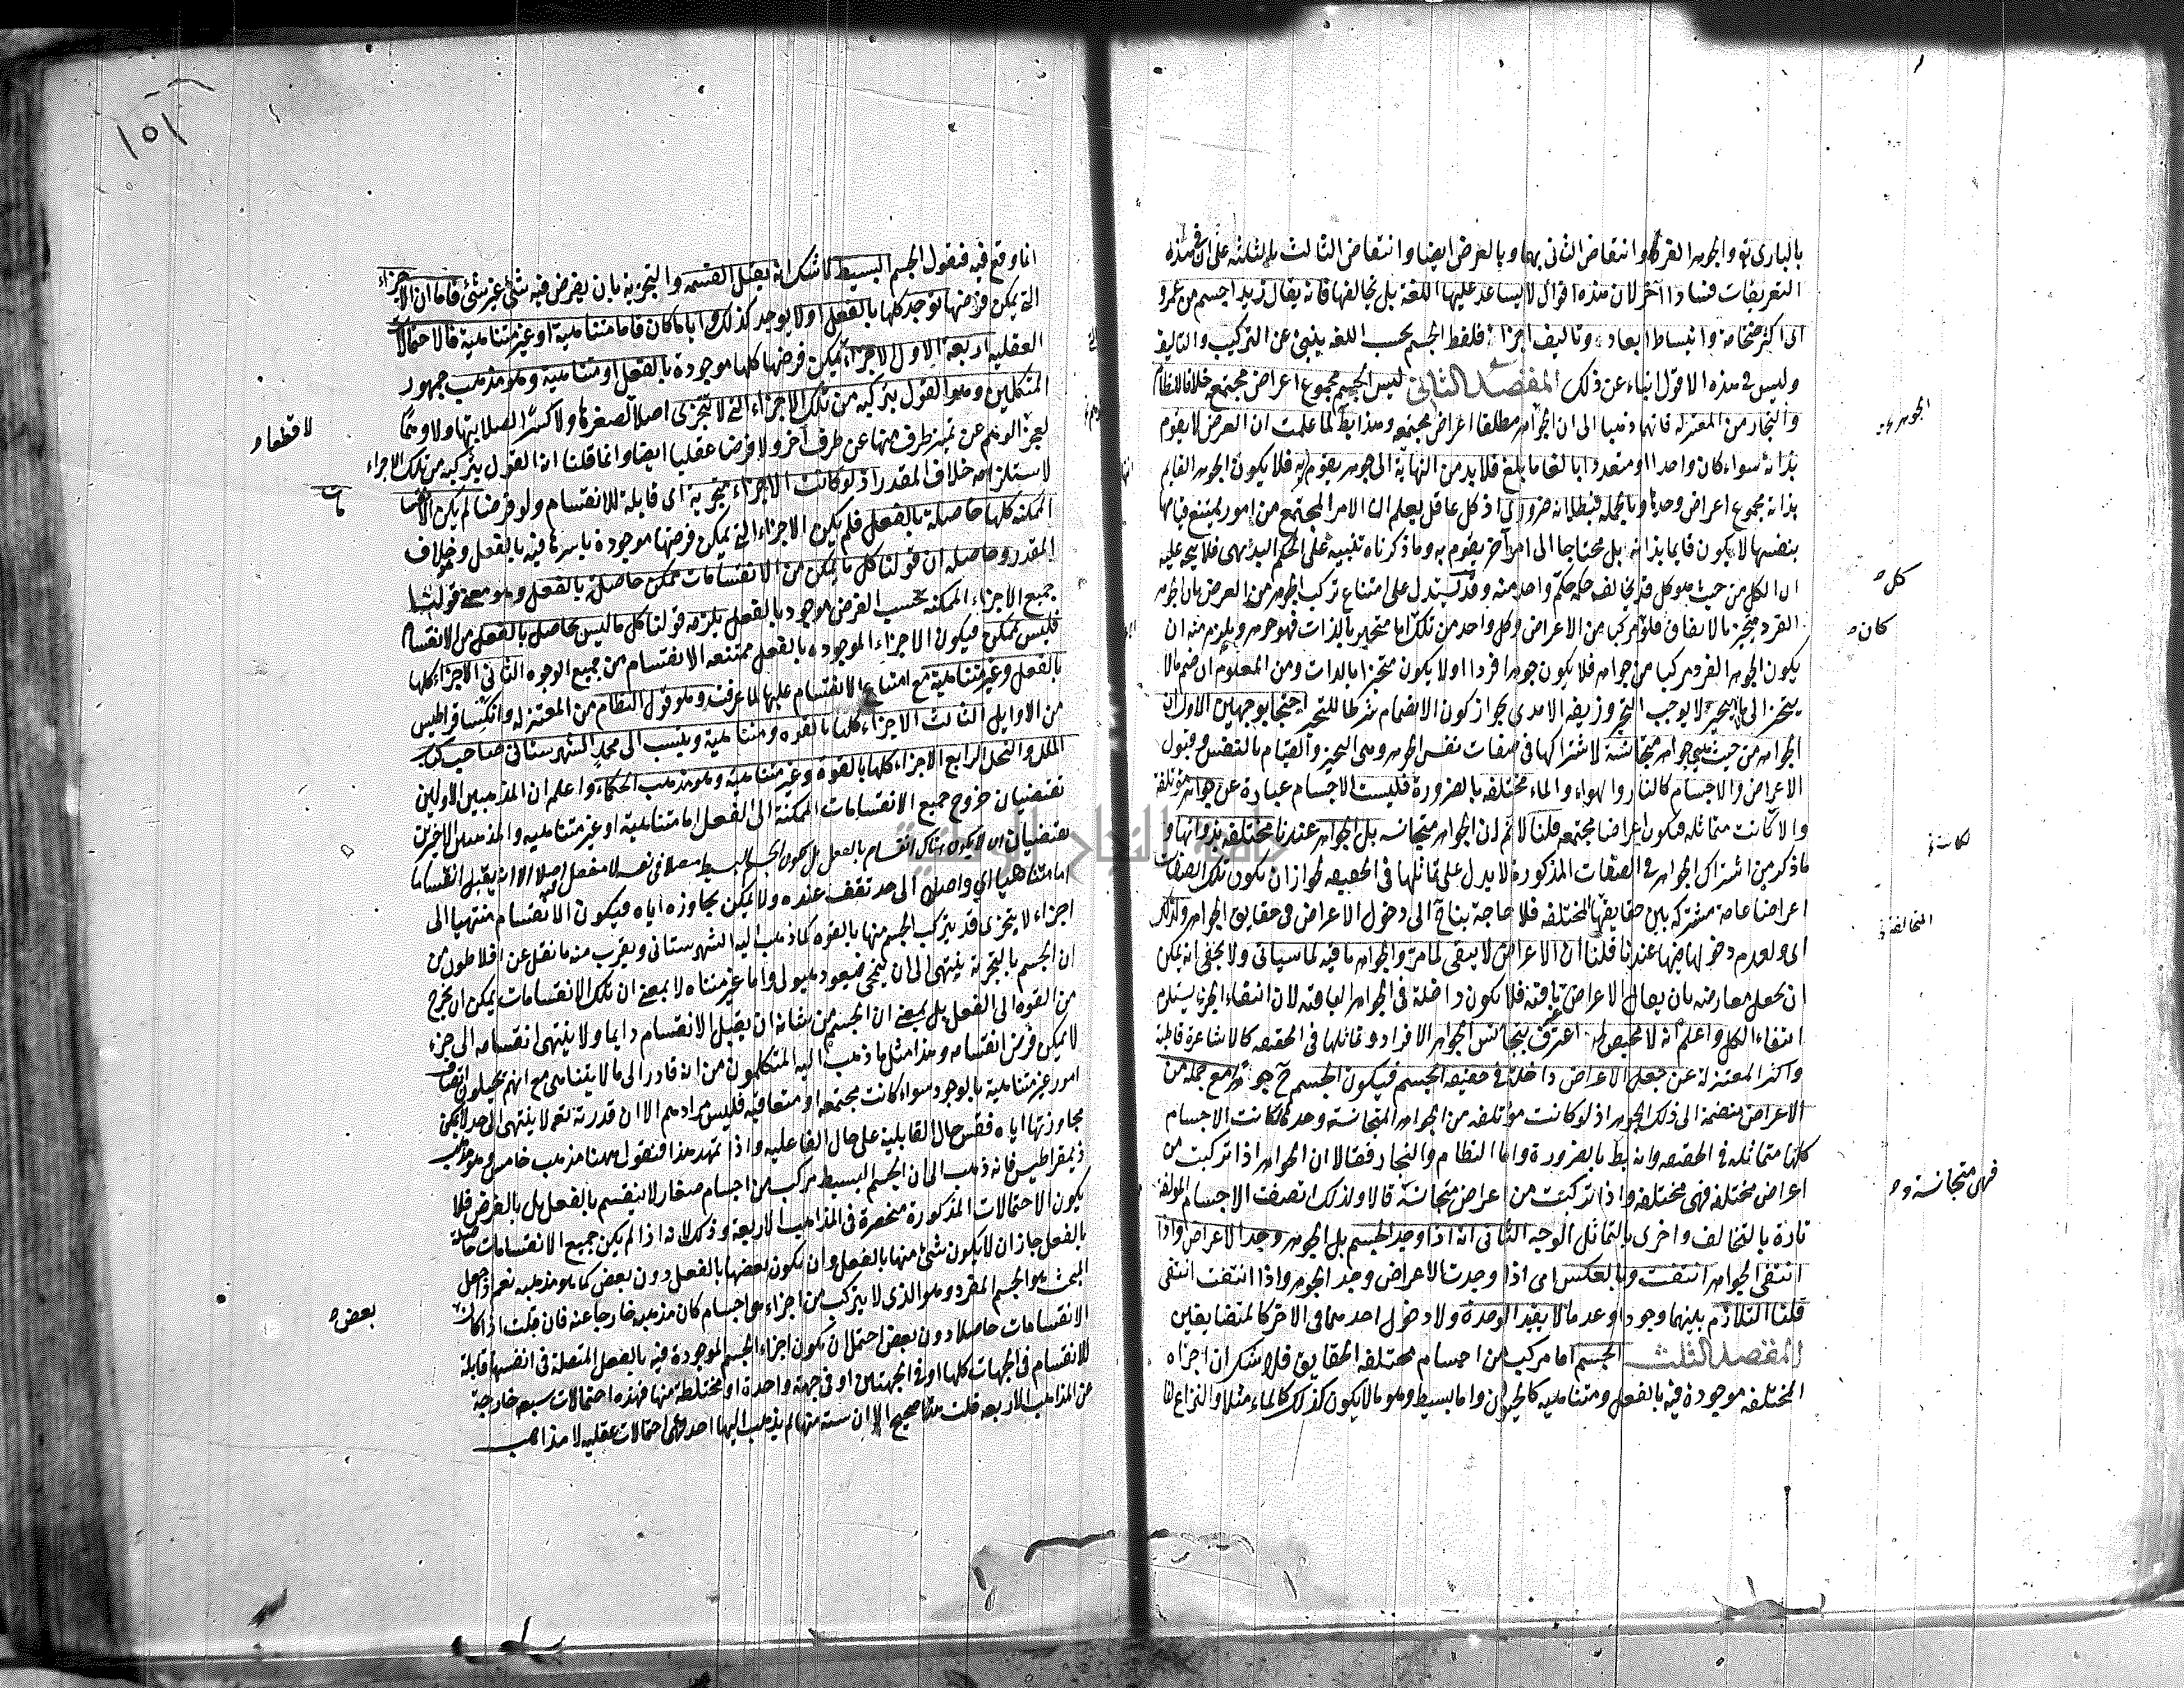 بالبارى تع والجوهر الفرد وانتقاض الثانى بهما وبالعرض ايضا وانتقاض الثالث بالثلثة على ان فى هذه
التعريفات فسادا آخر لان هذه اقوال لا يساعد عليها اللغة بل تخالفها فانه يقال زيد اجسم من عمرو
اى اكثر ضخامة وانبساط ابعاد وتاليف اجزاء فلفظ الجسم بحسب اللغة ينبئ عن التركيب والتاليف
وليس فى هذه الاقوال انباء عن ذلك المقصد الثانى ليس الجسم مجموع اعراض مجتمعة خلافا للنظام
والنجار من المعتزلة فانهما ذهبا الى ان الجواهر مطلقا اعراض مجتمعة وهذا بط لما علمت ان العرض لا يقوم
بذاته سواء كان واحدا او متعددا بالغا ما بلغ فلا بد من النهاية الى جوهر يقوم به فلا يكون الجوهر القايم
بذاته مجموع اعراض وحدها وبالجملة فبطلانه ضرورى اذ كل عاقل يعلم ان الامر المجتمع من امور يمتنع قيامها
بنفسها لا يكون قايما بذاته بل محتاجا الى امر آخر يقوم به وما ذكرناه تنبيه على الحكم البديهى فلا يتجه عليه
ان الكل من حيث هو كل قد يخالف حكمه حكم واحد منه وقد يستدل على امتناع تركب الجوهر من العرض بان الجوهر
الفرد متحيز بالاتفاق فلو مركب من الاعراض وكل واحد من تلك اما متحيز بالذات فهو جوهر ويلزم منه ان
يكون الجوهر الفرد مركبا من جواهر فلا يكون جوهرا فردا او لا يكون متحيزا بالذات ومن المعلوم ان ضم ما لا
يتحيز الى ما لا يتحيز لا يوجب التحيز وزيفه الامدى بجواز كون الانضمام شرطا للتحيز احتجا بوجهين الاول ان
الجواهر من حيث هى جواهر متجانسة لاشتراكها فى صفات نفس الجوهر وهى التحيز والقيام بالنفس وقبول
الاعراض والاجسام كالنار والهواء والماء مختلفة بالضرورة فليست الاجسام عبارة عن جواهر مؤتلفة
والا كانت متماثلة فتكون اعراضا مجتمعة قلنا لا نم ان الجواهر متجانسة بل الجواهر عندنا مختلفة بذواتها و
ما ذكر من اشتراك الجواهر فى الصفات المذكورة لا يدل على تماثلها فى الحقيقة لجواز ان تكون تلك الصفات
اعراضا عامة مشتركة بين حقايقها المختلفة فلا حاجة بنا ح الى دخول الاعراض فى حقايق الجواهر ولذلك
اى ولعدم دخولها فيها عندنا قلنا ان الاعراض لا يبقى لما مر والجواهر باقية لما سياتى ولا يخفى انه يمكن
ان يجعل معارضة بان يقال الاعراض باقية فلا تكون داخلة فى الجواهر الباقية لان انتفاء الجزء يستلزم
انتفاء الكل واعلم انه لا محيص لمن اعترف بتجانس الجواهر الافراد وتماثلها فى الحقيقة كالاشاعرة قاطبة
واكثر المعتزلة عن جعل الاعراض داخلة فى حقيقة الجسم فيكون الجسم ح جوهرا مع جملة من
الاعراض منضمة الى ذلك الجوهر اذ لو كانت مؤتلفة من الجواهر المتجانسة وحدها لكانت الاجسام
كلها متماثلة فى الحقيقة وانه بط بالضرورة واما النظام والنجار فقالا ان الجواهر اذا تركبت من
اعراض مختلفة فهى مختلفة واذا تركبت من اعراض متجانسة قالا ولذلك اتصفت الاجسام المؤلفة
تارة بالتخالف واخرى بالتماثل الوجه الثانى انه اذا وجد الجسم بل الجوهر وجد الاعراض واذا
انتفى الجواهر انتفت وبالعكس اى اذا وجدت الاعراض وجد الجوهر واذا انتفت انتفى
قلنا التلازم بينهما وجودا وعدما لا يفيد الوحدة ولا دخول احدهما فى الاخر كالمتضايفين
المقصد الثلث الجسم اما مركب من اجسام مختلفة الحقايق فلا شك ان اجزاه
المختلفة موجودة فيه بالفعل ومتناهية كالحيوان واما بسيط وهو ما لا يكون كذلك كالماء مثلا والنزاع انما
الجوهرية
كل
كان
لكانت
المتخالفة
فهى متجانسة
١٥١
انما وقع فيه فنقول الجسم البسيط لا شك انه يقبل القسمة والتجزية بان يفرض فيه شئ غير شئ فاما ان الاجزاء
التى يمكن فرضها توجد كلها بالفعل او لا يوجد كذلك وايا ما كان فاما متناهية او غير متناهية فالاحتمالات
العقلية اربعة الاول الاجزاء يمكن فرضها كلها موجودة بالفعل او متناهية وهو مذهب جمهور
المتكلمين وهو القول بتركبه من تلك الاجزاء التى لا تتجزى اصلا لصغرها ولا كسرا لصلابتها ولا وهما
لعجز الوهم عن تميز طرف منها عن طرف آخر ولا فرضا عقليا ايضا وانما قلنا ان القول بتركبه من تلك الاجزاء
لاستلزامه خلاف المقدر اذ لو كانت الاجزاء متجزية اى قابلة للانقسام ولو فرضا لم يكن الانقسامات
الممكنة كلها حاصلة بالفعل فلم يكن الاجزاء التى يمكن فرضها موجودة باسرها فيه بالفعل وهو خلاف
المقدر وحاصله ان قولنا كل ما يمكن من الانقسامات ممكن حاصل بالفعل وهو معنى قولنا
جميع الاجزاء الممكنة بحسب الفرض موجود بالفعل يلزمه قولنا كل ما ليس بحاصل بالفعل من الانقسام
فليس بممكن فيكون الاجزاء الموجودة بالفعل ممتنعة الانقسام من جميع الوجوه الثانى الاجزاء كلها
بالفعل وغير متناهية مع امتناع الانقسام عليها لما عرفت وهو قول النظام من المعتزلة وانكسافراطيس
من الاوايل الثالث الاجزاء كلها بالقوة ومتناهية وينسب الى محمد الشهرستانى صاحب كتاب
الملل والنحل الرابع الاجزاء كلها بالقوة وغير متناهية وهو مذهب الحكماء واعلم ان المذهبين الاولين
يقتضيان خروج جميع الانقسامات الممكنة الى الفعل اما متناهية او غير متناهية والمذهبين الاخيرين
يقتضيان ان لا يكون هناك انقسام بالفعل بل يكون الجسم البسيط متصلا فى نفسه لا مفصل فيه اصلا الا انه يقبل انقساما
اما متناهيا اى واصلا الى حد تقف عنده ولا يمكن تجاوزه اياه فيكون الانقسام منتهيا الى
اجزاء لا يتجزى قد يتركب الجسم منها بالقوة كما ذهب اليه الشهرستانى ويقرب منه ما نقل عن افلاطون من
ان الجسم بالتجزية ينتهى الى ان ينمحى فيعود هيولى واما غير متناه لا بمعنى ان تلك الانقسامات يمكن ان يخرج
من القوة الى الفعل بل بمعنى ان الجسم من شانه ان يقبل الانقسام دايما ولا ينتهى انقسامه الى جزء
لا يمكن فرض انقسامه وهذا مثل ما ذهب اليه المتكلمون من ان الله قادر الى ما لا يتناهى مع انهم يحيلون اتصاف
امور غير متناهية بالوجود سواء كانت مجتمعة او متعاقبة فليس مرادهم الا ان قدرته تعم لا ينتهى الى حد لا يمكن
مجاوزتها اياه فقس حال القابلية على حال الفاعلية واذا تمهد هذا فنقول ههنا مذهب خامس وهو مذهب
ذيمقراطيس فانه ذهب الى ان الجسم البسيط مركب من اجسام صغار لا ينقسم بالفعل بل بالفرض فلا
يكون الاحتمالات المذكورة منحصرة فى المذاهب الاربعة وذلك لانه اذا لم يكن جميع الانقسامات حاصلة
بالفعل جاز ان لا يكون شئ منها بالفعل وان يكون بعضها بالفعل دون بعض كما هو مذهبه نعم اذ جعل
البحث هو الجسم المفرد وهو الذى لا يتركب من اجزاء هى اجسام كان مذهبه خارجا عنه فان قلت اذا كان
الانقسامات حاصلا دون بعض احتمل ان تكون اجزاء الجسم الموجودة فيه بالفعل المتصلة فى انفسها قابلة
للانقسام فى الجهات كلها او فى الجهتين او فى جهة واحدة او مختلطة منها فهذه احتمالات سبعة خارجة
من المذاهب الاربعة قلت هذا صحيح الا ان ستة منها لم يذهب اليها احد فهى احتمالات عقلية لا مذاهب
لا قطعا
ت
بعض
جامعة النجاح الوطنية